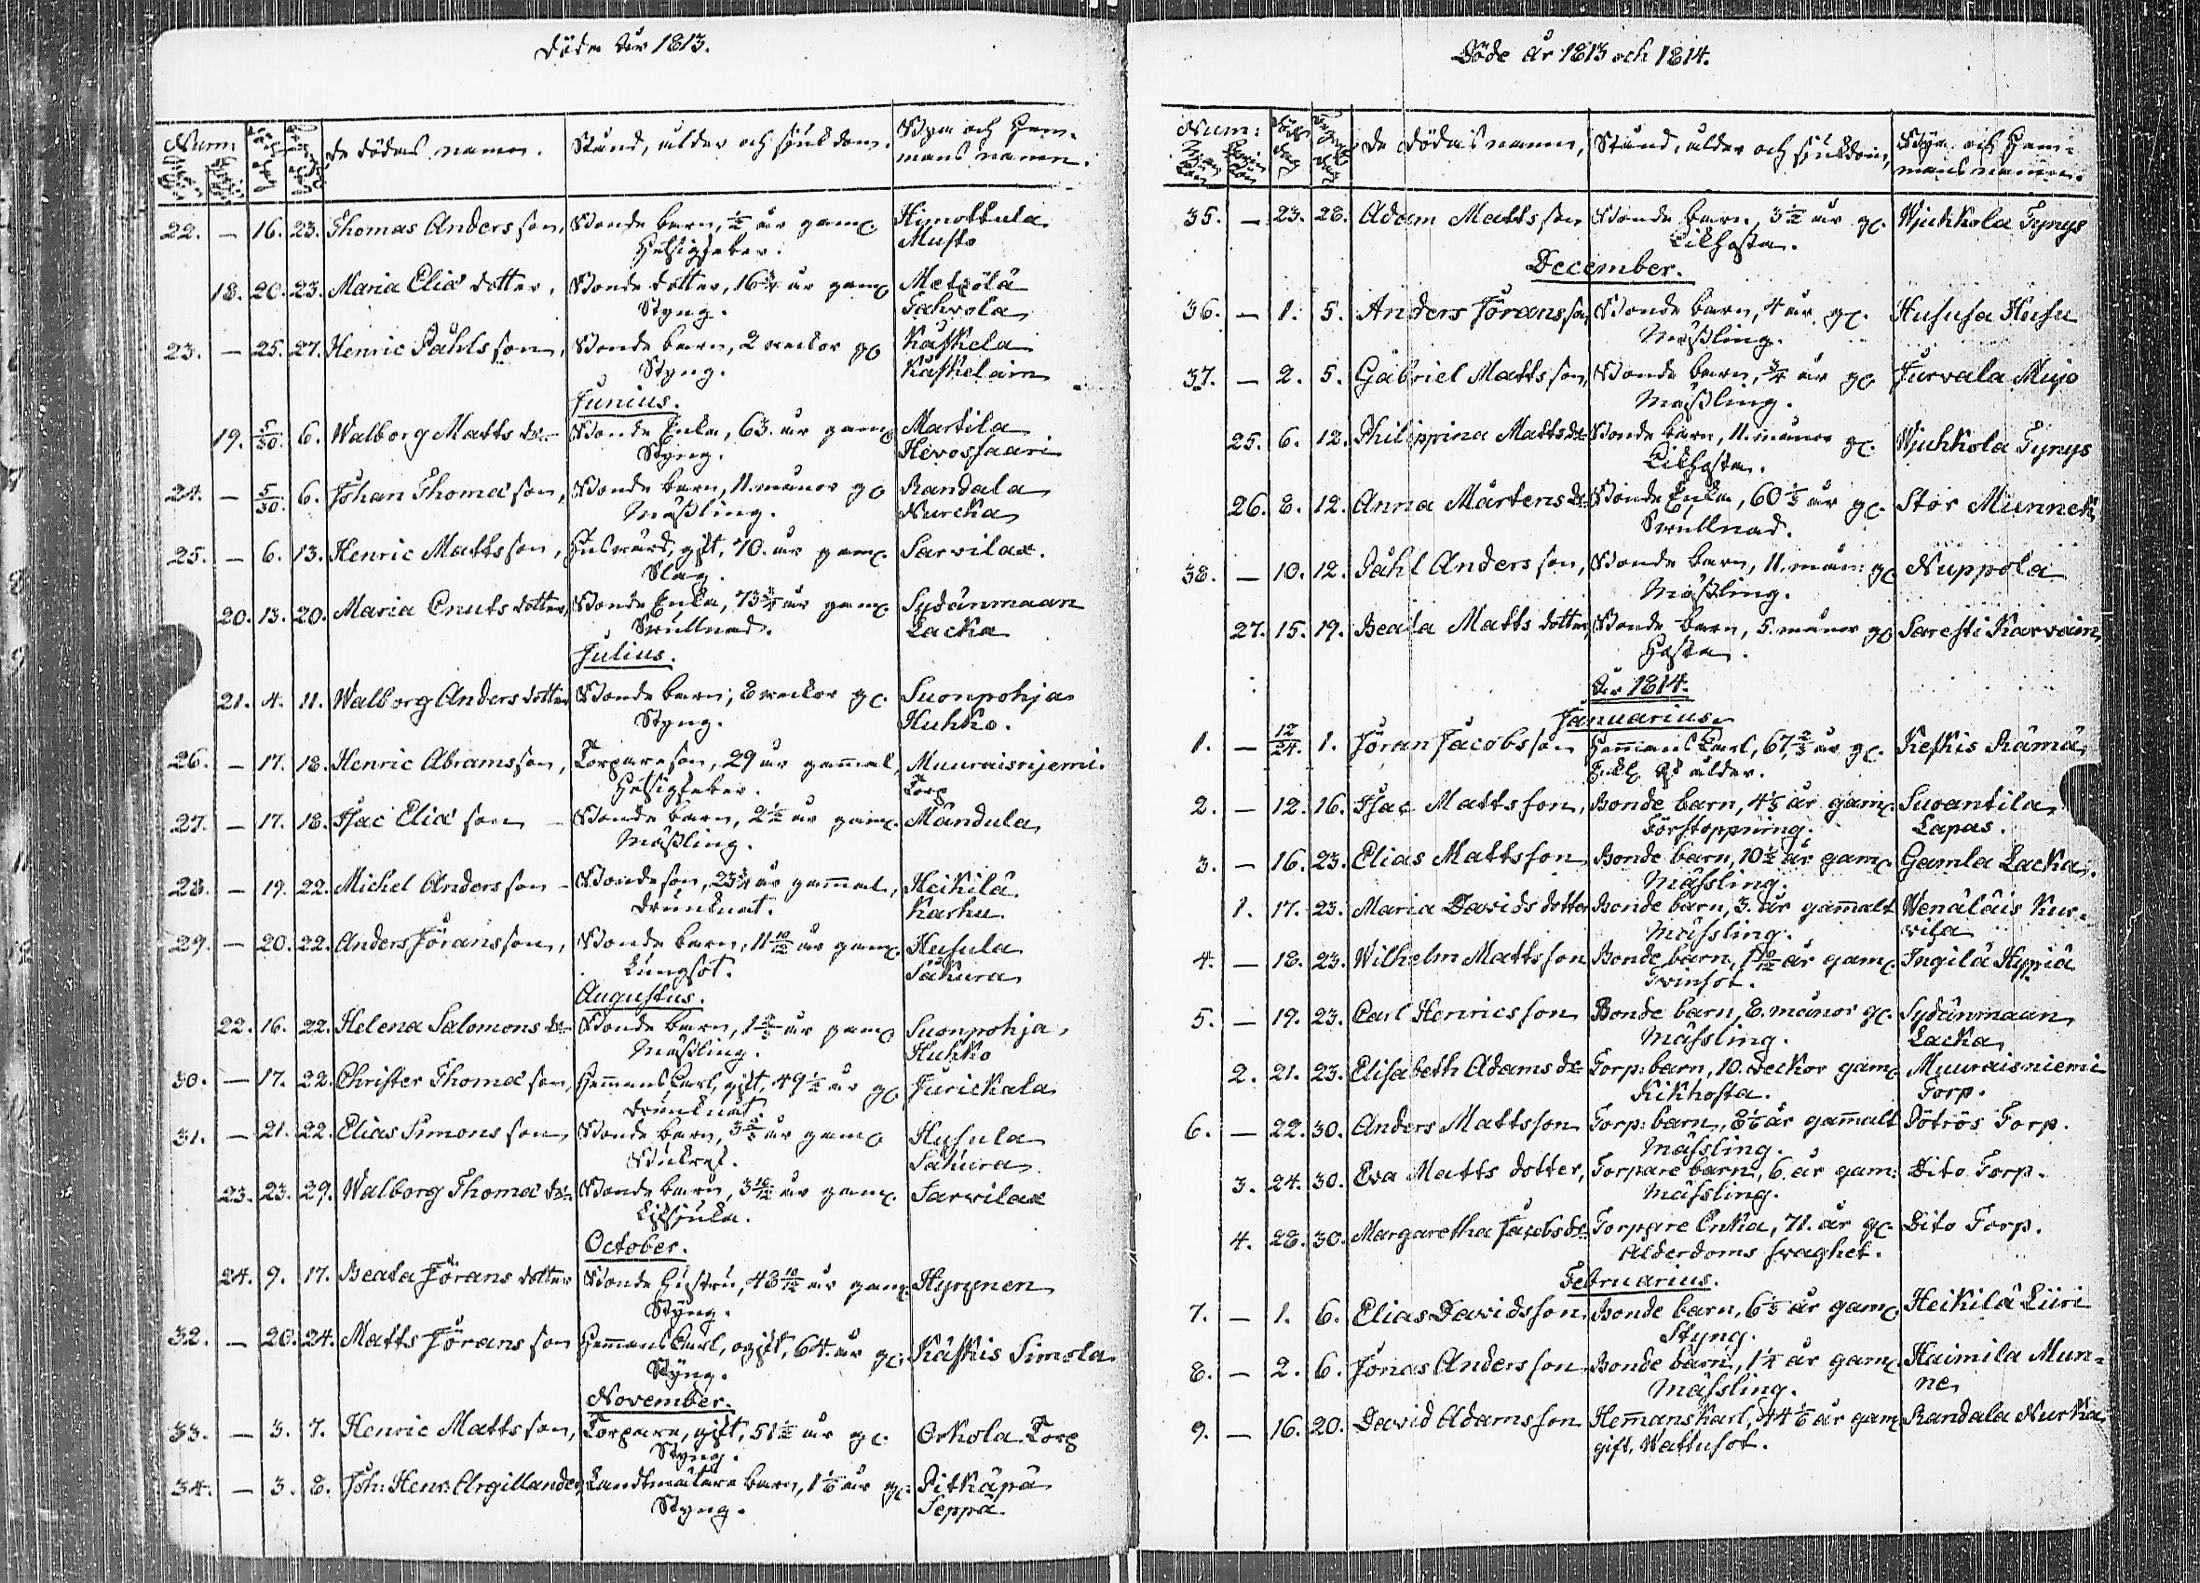 Döde År 1813.
Num:
De dödas namn. Stånd, ålder och sjukdom. Byn och Hem-
mans namn.
22. — 16. 23. Thomas Andersson, Bonde barn, ½ år gam: Himottula
Hetsigfeber. Musto
18. 20. 23. Maria Eliæ dotter, Bonde dotter, 16¾ år gam: Metzölä
Styng. Tahvola
23. — 25. 27. Henric Påhlsson, Bonde barn, 2 veckor g: Käskela
Styng. Käskeläin
Junius.
19. 5/30 6. Walborg Matts dr. Bonde Enka, 63. år gam: Martila
Styng. Hevossaari
24. — 5/30 6. Johan Thomæ son, Bonde barn, 11. månor g: Randala
Mäßling. Nurcka
25. — 6. 13. Henric Mattsson, Husvärd, gift, 70. år gam: Sarvilax.
Slag.
20. 13. 20. Maria Cnuts dotter, Bonde Enka, 73¾ år gam: Sydänmaan
Swullnad. Lacka
Julius.
21. 4. 11. Walborg Anders dotter Bonde barn, 8 veckor g: Suonpohja
Styng. Huhko.
26. — 17. 18. Henric Abramsson, Torpareson, 29 år gamal, Muuraisnjemi
Hetsigfeber. Torp
27. — 17. 18. Isac Eliæ son Bonde barn, 2½ år gam: Mändula
Mäßling.
28. — 19. 22. Michel Andersson Bondeson, 23¾ år gamal, Heikilä
Drunknat. Karhu
29. — 20. 22. Anders Jöransson, Bonde barn, 11 10/12 år gam: Husula
Lungsot. Säkura
Augustus.
22. 16. 22. Helena Salomons dr Bonde barn, 1⅔ år gam: Suonpohja
Mäßling. Huhko
30. — 17. 22. Christer Thomæ son, Hemans Carl, gift, 49½ år g: Jurickala
Drunknat.
31. — 21. 22. Elias Simonsson, Bonde barn, 3⅔ år gam: Husula
Säkura
23. 23. 29. Walborg Thomæ dr. Bonde barn, 3 10/12 år gam: Sarvilax
October.
24. 9. 17. Beata Jörans dotter Bonde hustru, 48 10/12 år gam: Hyrynen
Styng.
32. — 20. 24. Matts Jöransson Hemans Carl, ogift, 64. år g: Käskis Simola
Styng.
November.
33. — 3. 7. Henric Mattsson, Torpare, gift, 51½ år g: Orkola Torp
Styng.
34. — 3. 8. Joh: Henr: Argillander, Landtmätare barn, 1⅙ år g: Pitkäpä
Styng. Seppä
Döde år 1813 och 1814.
Num:
De dödas namn, Stånd, ålder och sjukdom, Byn och Hem-
mans namn.
35. — 23. 28. Adam Mattsson Bonde barn, 3½ år g: Wjuhkola Tynys
Kikhosta.
December.
36. — 1. 5. Anders Jöransson Bonde barn, 4 år g: Hususa Husu
Mäßling.
37. — 2. 5. Gabriel Mattsson, Bonde barn, ¾ år g: Jurvala Mujo
Mäßling.
25. 6. 12. Philippina Matts dr Bonde barn, 11. månor g: Wjuhkola Tynys
Kikhosta.
26. 8. 12. Anna Mårtens dr Bonde Enka, 60⅓ år g: Stor Munnek
Swullnad.
38. — 10. 12. Påhl Andersson, Bonde barn, 11. mån: g: Nuppola
Mäßling.
27. 15. 19. Beata Matts dotter, Bonde barn, 5. månor g: Saresti Karvain
Hosta.
År 1814.
Januarius.
1. — 12/24. 1. Jöran Jacobsson Hemans Carl, 67⅔ år g: Keskis Rämä
Enkl. af ålder.
2. — 12. 16. Isac Mattsson, Bonde barn, 4⅓ år gam: Suvantila
Förstoppning. Lapas.
3. — 16. 23. Elias Mattsson Bonde barn, 10½ år gam: Gamla Lacka.
Mässling.
1. 17. 23. Maria Davids dotter Bonde barn, 3. år gamalt Wenäläis Kur-
Mässling. vila
4. — 18. 23. Wilhelm Mattsson Bonde barn, 1 10/12 år gam: Ingilä Hypiä
Tvinsot.
5. — 19. 23. Carl Henricsson Bonde barn, 8. månor g: Sydänmaan
Mässling. Lacka
2. 21. 23. Elisabeth Adams dr Torp: barn, 10. veckor gam: Muuraisniemi
Kikhosta. Torp.
6. — 22. 30. Anders Mattsson Torp: barn, 8½ år gamalt Pötrös Torp.
Mässling.
3. 24. 30. Eva Matts dotter, Torpare barn, 6. år gam: Dito Torp.
Mässling.
4. 28. 30. Margaretha Jacobs dr. Torpare Enka, 71. år g: Dito Torp.
Ålderdoms svaghet.
Februarius.
7. — 1. 6. Elias Davidsson, Bonde barn, 6⅓ år gam: Heikilä Liiri
Styng.
8. — 2. 6. Jonas Andersson Bonde barn, 1¼ år gam: Haimila Mun-
Mässling. ne
9. — 16. 20. David Adamsson Hemanskarl, 44⅙ år gam: Randala Nurka
gift. Wattusot.